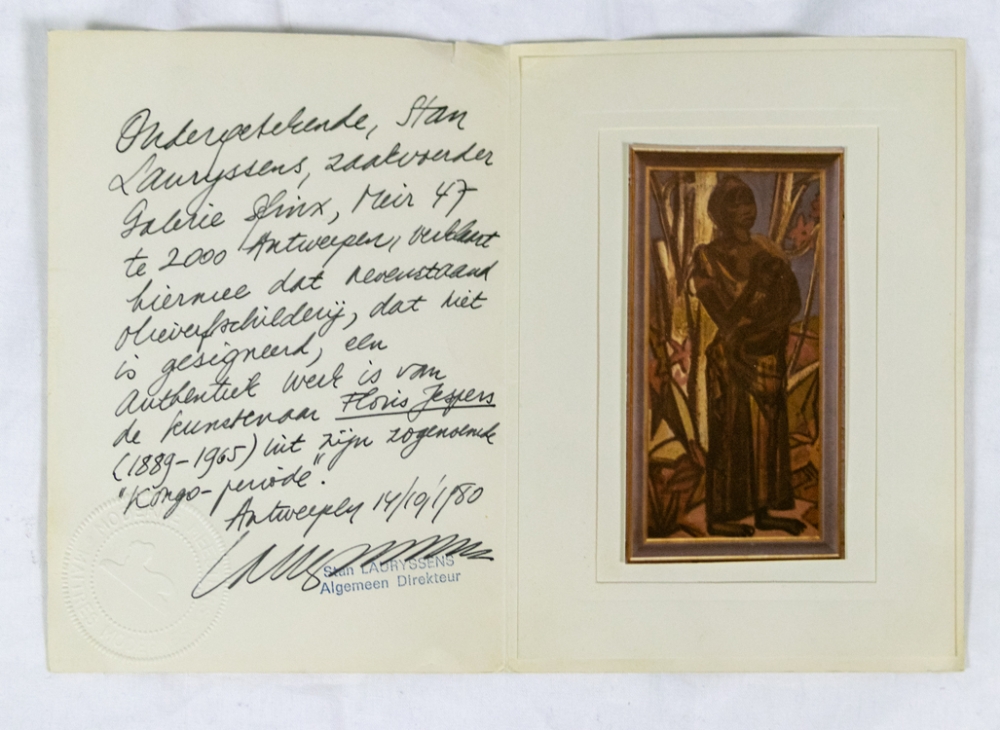 Ondergetekende, Stan
Lauryssens, zaakvoerder
Galerie Sfinx, Meir 47
te 2000 Antwerpen, verklaart
hiermee dat nevenstaand
olieverfschilderij, dat niet
is gesigneerd, een
Authentiek werk is van
de kunstenaar Floris Jespers
(1889-1965) uit zijn zogenoemde
"Kongo-periode".
Antwerpen 14/10/1980
Stan LAURYSSENS
Algemeen Direkteur